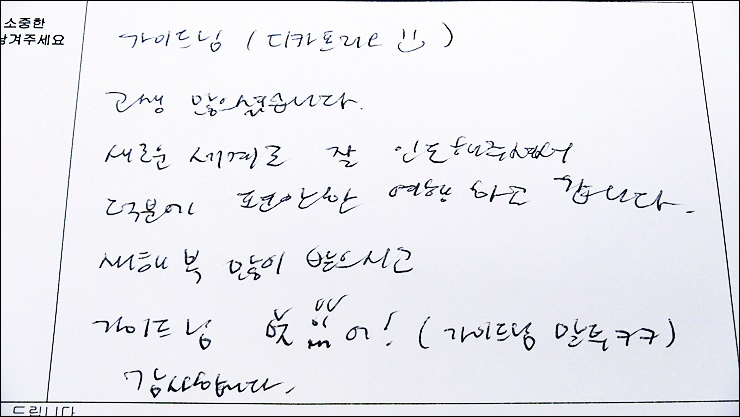 소중한
남겨주세요
가이드님 (디카프리오 !!)
고생 많으셨습니다.
새로운 세계로 잘 인도해주셔서
덕분에 편안한 여행 하고 갑니다.
새해 복 많이 받으시고
가이드님 멋있어! (가이드님 말투ㅋㅋ)
감사합니다.
드립니다